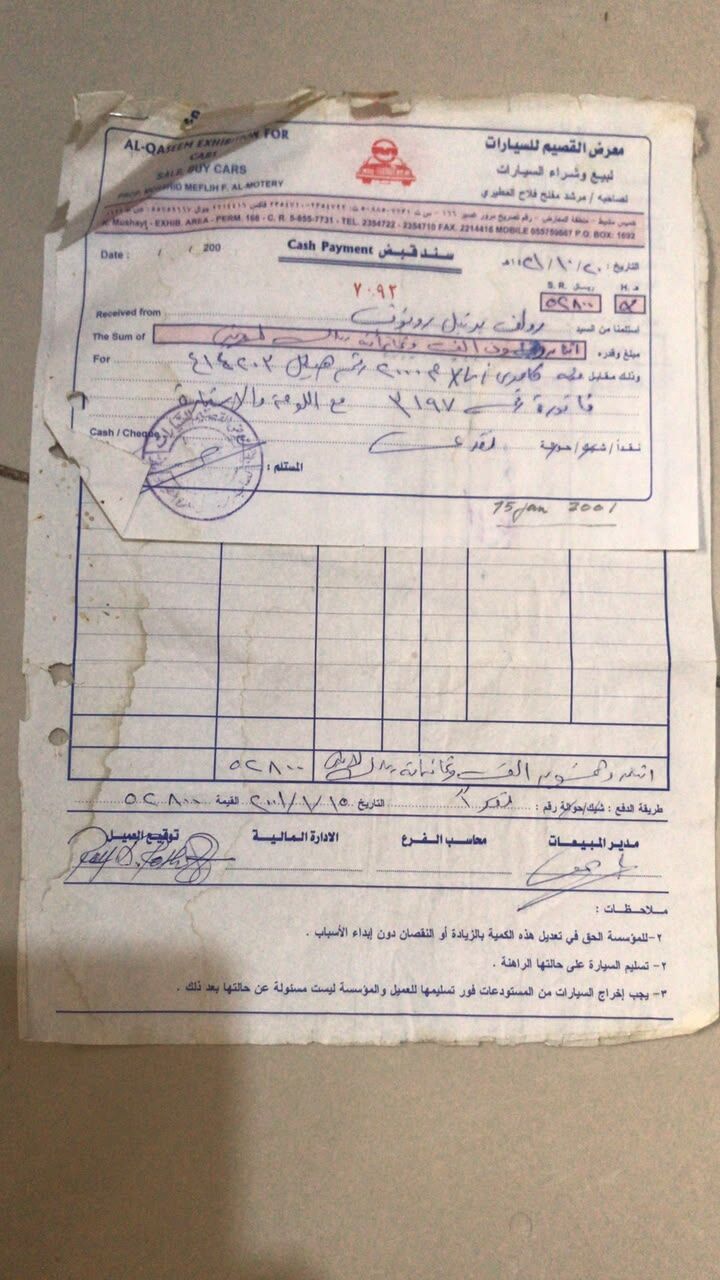 AL-QASEEM EXHIBITION FOR
CARS
SALE BUY CARS
PROP. MURSHID MEFLIH F. AL-MOTERY
معرض القصيم للسيارات
لبيع وشراء السيارات
لصاحبه / مرشد مفلح فلاح المطيري
خميس مشيط - منطقة المعارض - رقم تصريح مرور عسير ١٦٦
Mushayt - EXHIB. AREA - PERM. 166 - C. R. 5-855-7731 - TEL. 2354722 - 2354710 FAX. 2214416 MOBILE 055759667 P.O. BOX: 1692
Date : / / 200
Cash Payment سند قبض
التاريخ : ٢٠ / ١٠ / ١٤٢١هـ
٧٠٩٢
S. R. ريـال
H. هـ
٥٢٨٠٠
Received from
استلمنا من السيد
The Sum of
مبلغ وقدره
الف وثمانمائة ريال
For
وذلك مقابل
٢٠٠٠ م رقم هيكل ٤١٤٢٠٣
فاتورة رقم ٣١٩٧ مع اللوحة والاستمارة
Cash / Cheque
نقداً / شيك / حوالة
نقدي
المستلم :
15 jan 2001
٥٢٨٠٠
الف وثمانمائة ريال
طريقة الدفع : شيك/حوالة رقم : نقداً التاريخ ٢٠٠١/١/١٥ القيمة ٥٢٨٠٠
مدير المبيعات
محاسب الفرع
الادارة المالية
توقيع العميل
ملاحظات :
٢- للمؤسسة الحق في تعديل هذه الكمية بالزيادة أو النقصان دون إبداء الأسباب .
٢- تسليم السيارة على حالتها الراهنة .
٣- يجب إخراج السيارات من المستودعات فور تسليمها للعميل والمؤسسة ليست مسئولة عن حالتها بعد ذلك .